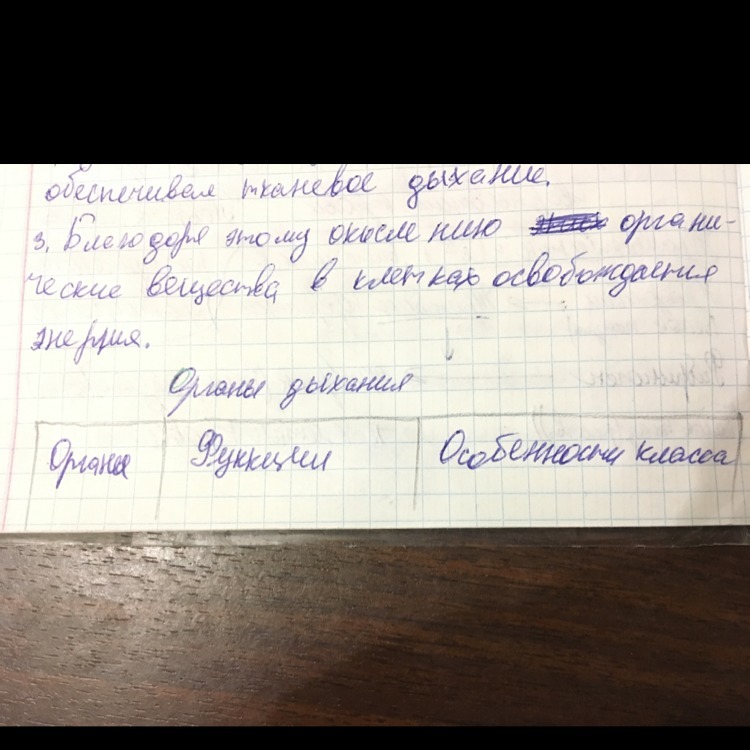 обеспечивая тканевое дыхание.
3. Благодоря этому окислению органи-
ческие вещества в клетках освобождается
энергия.
Органы дыхания
Органы Функции Особенности класса